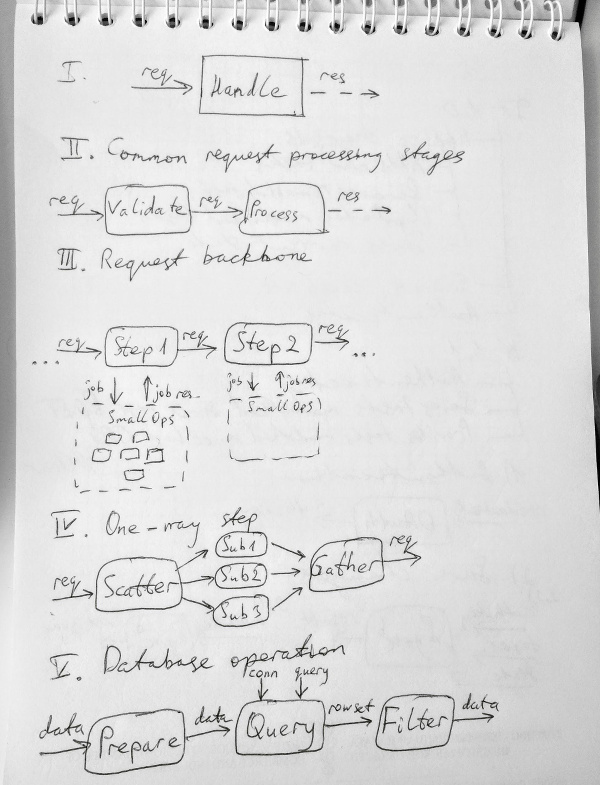 I. req Handle res
II. Common request processing stages
req Validate req Process res
III. Request backbone
... req Step 1 req Step 2 req ...
job job res job job res
Small Ops Small Ops
IV. One-way step
req Scatter Sub1 Sub2 Sub3 Gather req
V. Database operation
conn query
data Prepare data Query rowset Filter data